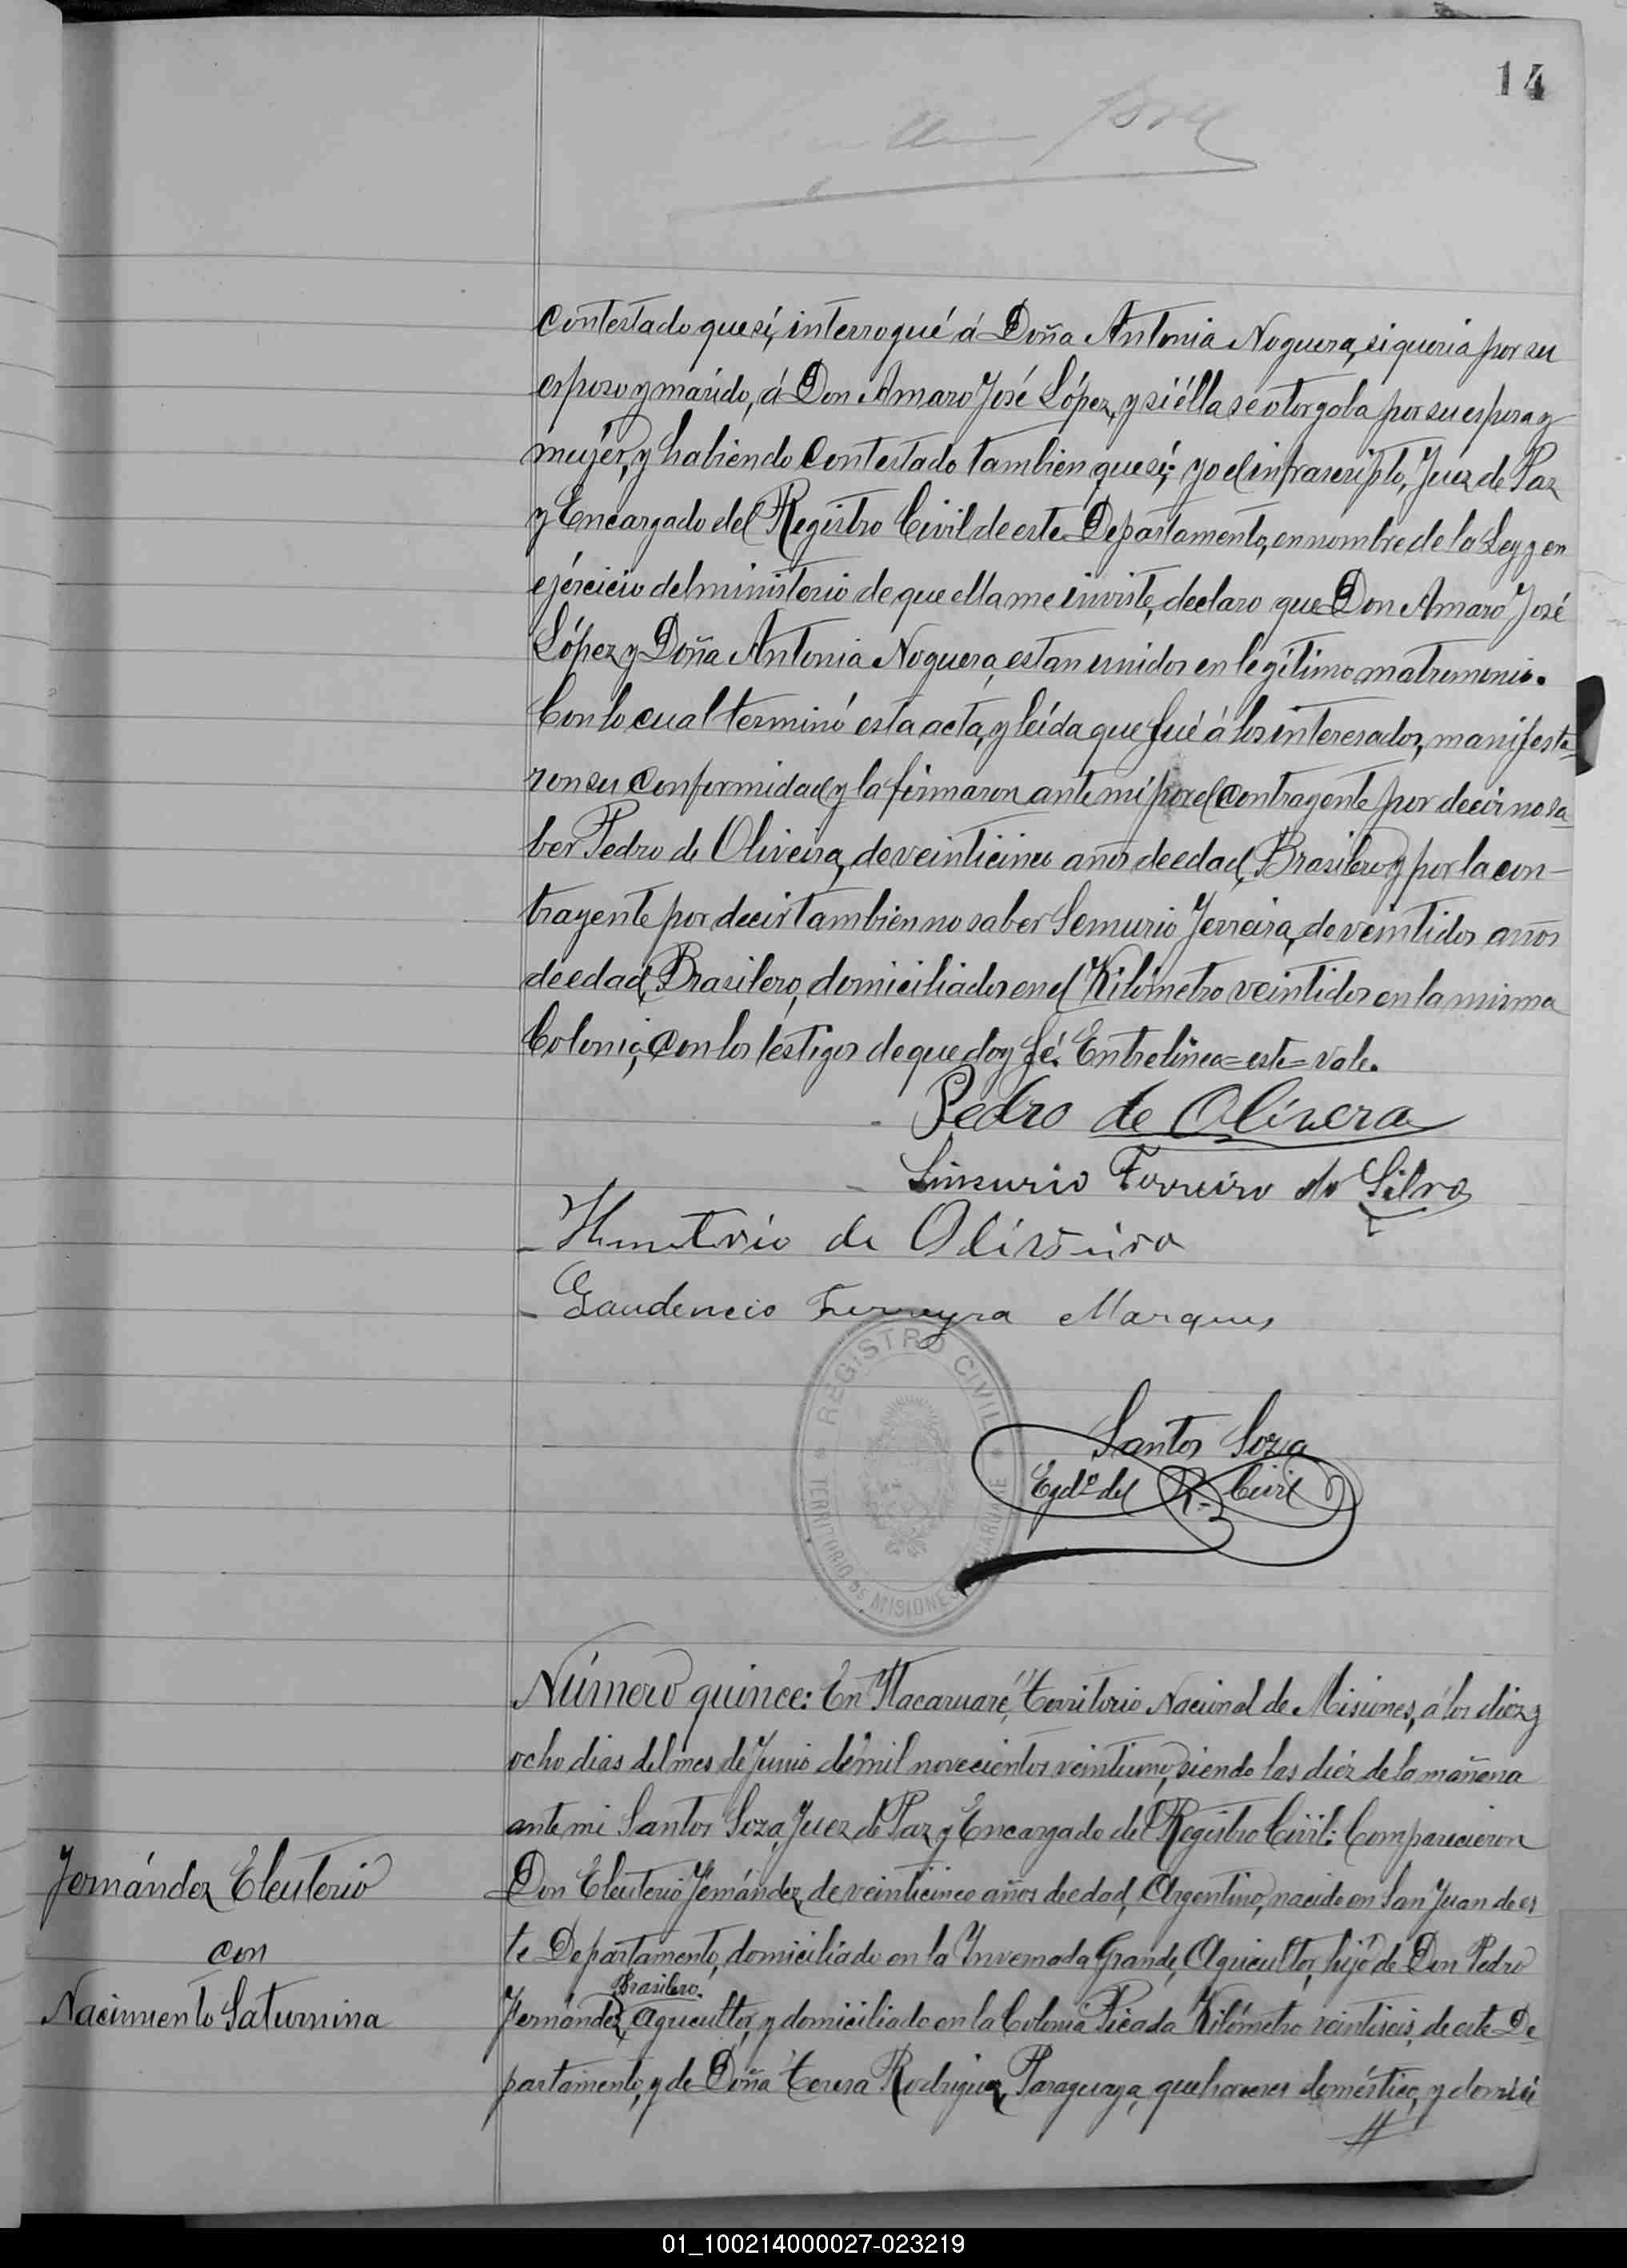 14
contestado que sí, interrogué á Doña Antonia Noguera, si queria por su
esposo y marido, á Don Amaro José López, y si élla se otorgaba por su esposa y
mujér, y habiendo contestado tambien que sí; yo el infrascripto, Juez de Paz
y Encargado del Registro Civil de este Departamento, en nombre de la Ley y en
ejércicio del ministerio de que ella me inviste, declaro que Don Amaro José
López y Doña Antonia Noguera, estan unidos en legítimo matrimonio.
Con lo cual terminó esta acta, y leída que fué á los interesados, manifesta
ron su conformidad y la firmaron ante mí, por el contrayente por decir no sa
ber Pedro de Oliveira, de veinticinco años de edad, Brasilero y por la con-
trayente por decir tambien no saber Semurio Ferreira, de veintidos años
de edad, Brasilero, domiciliados en el Kilómetro veintidos en la misma
Colonia, con los téstigos de que doy fé. Entrelínea=este=vale.
Pedro de Olivera
Simurio Ferreira da Silva
de Oliveira
Gaudencio Ferreyra Marques
REGISTRO CIVIL
TERRITORIO DE MISIONES
Santos Soza
Egdo. del R. Civil
Número quince: En "Itacaruaré," Territorio Nacional de Misiones, á los diez y
ocho dias del mes de Junio de mil novecientos veintiuno, siendo las diéz de la mañana
ante mi Santos Soza, Juez de Paz y Encargado del Registro Civil: Comparecieron
Fernández Eleuterio
con
Nacimiento Saturnina
Don Eleuterio Fernández, de veinticinco años de edad, Argentino, nacido en San Juan de es
te Departamento, domiciliado en la Invernada Grande, Agricultor, hijo de Don Pedro
Brasilero.
Fernández, agricultor, y domiciliado en la Colonia Picada Kilómetro veintiseis, de este De
partamento, y de Doña Teresa Rodriguez, Paraguaya, quehaceres doméstico, y domici
//
01_100214000027-023219